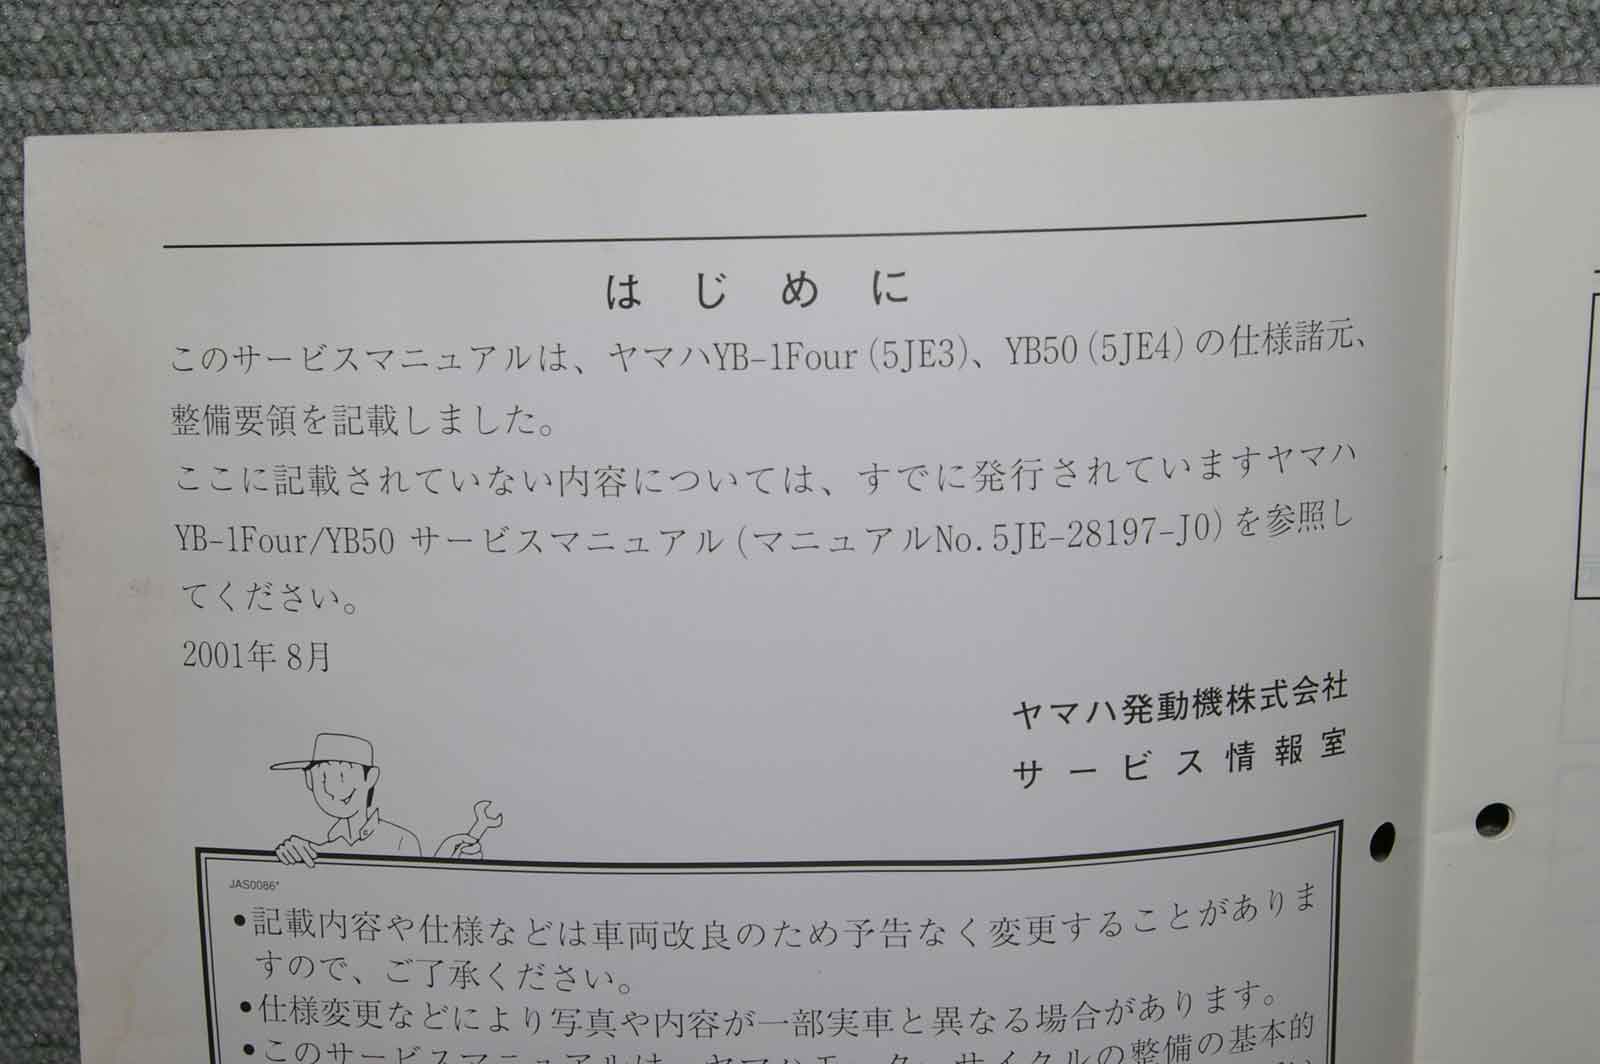 はじめに
このサービスマニュアルは、ヤマハYB-1Four(5JE3)、YB50(5JE4)の仕様諸元、
整備要領を記載しました。
ここに記載されていない内容については、すでに発行されていますヤマハ
YB-1Four/YB50 サービスマニュアル(マニュアルNo.5JE-28197-J0)を参照し
てください。
2001年8月
ヤマハ発動機株式会社
サービス情報室
JAS0086*
●記載内容や仕様などは車両改良のため予告なく変更することがありま
すので、ご了承ください。
●仕様変更などにより写真や内容が一部実車と異なる場合があります。
●このサービスマニュアルは、ヤマハモーターサイクルの整備の基本的